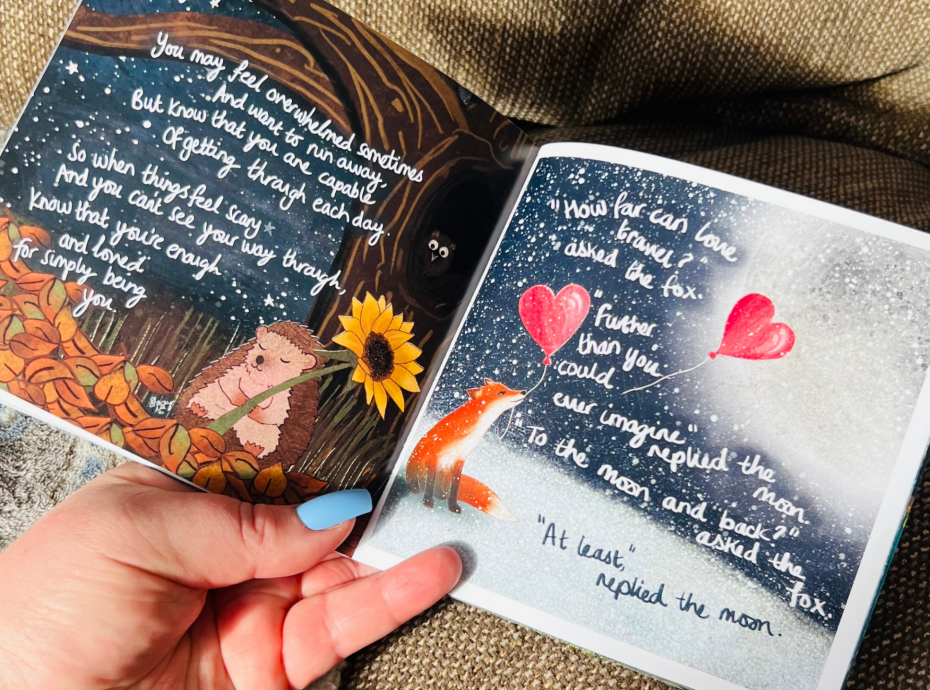 You may feel overwhelmed sometimes
And want to run away,
But know that you are capable
Of getting through each day.
So when things feel scary
And you can't see your way through,
Know that you're enough
and loved
for simply being
you.
"How far can love
travel?"
asked the fox.
"Further
than you
could
ever imagine"
replied the
moon.
"To the moon and back?"
asked the
fox.
"At least,"
replied the moon.